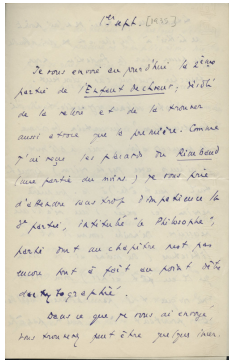 1er Sept. [1935]
Je vous envoie aujourd'hui la 2ème
partie de l'Enfant de chœur; désolé
de la relire et de la trouver
aussi atroce que la première. Comme
j'ai reçu les placards du Rimbaud
(une partie du moins) je vous prie
d'attendre sans trop d'impatience la
3e partie, intitulée "le Philosophe",
partie dont un chapitre n'est pas
encore tout à fait au point d'être
dactylographié.
Dans ce que je vous ai envoyé
vous trouverez peut être quelques